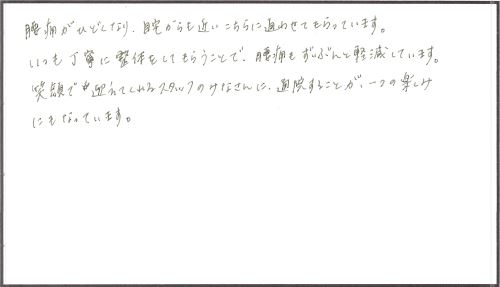 腰痛がひどくなり、自宅からも近いこちらに通わせてもらっています。
いつも丁寧に整体をしてもらうことで、腰痛もずいぶんと軽減しています。
笑顔で迎えてくれるスタッフのみなさんに、通院することが、一つの楽しみ
にもなっています。